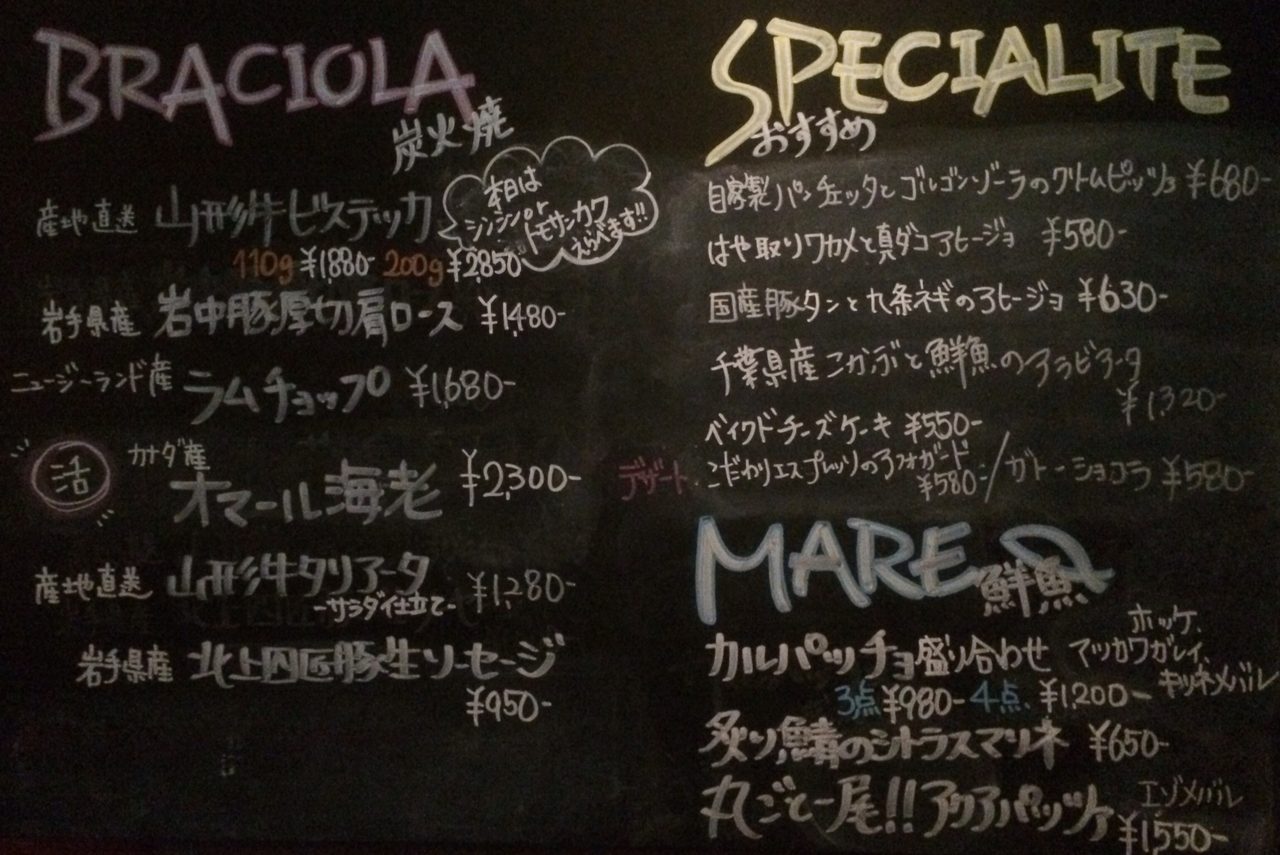 BRACIOLA
炭火焼
産地直送 山形牛ビステッカ
本日は
シンシン or
トモサンカク
えらべます!!
110g ¥1,880- 200g ¥2,850-
岩手県産 岩中豚厚切肩ロース ¥1,480-
ニュージーランド産 ラムチョップ ¥1,680-
活 カナダ産
オマール海老 ¥2,300-
産地直送 山形牛タリアータ ¥1,280-
-サラダ仕立て-
岩手県産 北上四匠豚生ソーセージ
¥950-
SPECIALITE
おすすめ
自家製パンチェッタとゴルゴンゾーラのクリームピッツァ ¥680-
はや取りワカメと真ダコアヒージョ ¥580-
国産豚タンと九条ネギのアヒージョ ¥630-
千葉県産こかぶと鮮魚のアラビアータ
¥1,320-
ベイクドチーズケーキ ¥550-
デザート こだわりエスプレッソのアフォガード
¥580-/ガトーショコラ ¥580-
MARE
鮮魚
カルパッチョ盛り合わせ ホッケ、
マツカワガレイ、
キツネメバル
3点 ¥980- 4点 ¥1,200-
炙り鯖のシトラスマリネ ¥650-
丸ごと一尾!!アクアパッツァ エゾメバル
¥1,550-